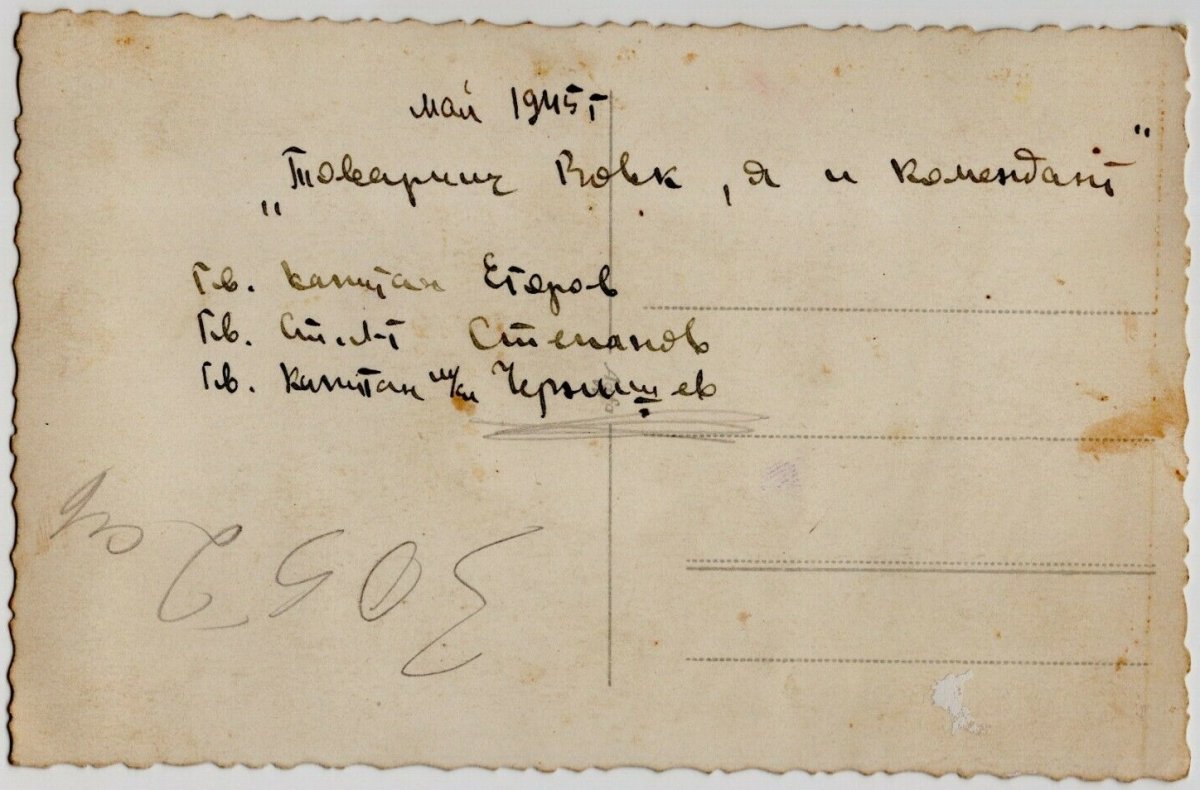 май 1945 г
"Товарищ Вовк, я и комендант"
Гв. капитан Егоров
Гв. Ст. л-т Степанов
Гв. капитан м/сл Чернышев